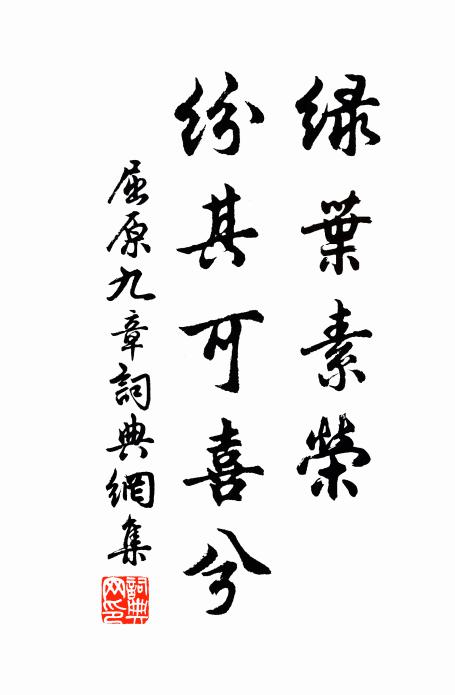 綠葉素榮
紛其可喜兮
屈原九章詞典網集
詞典網印